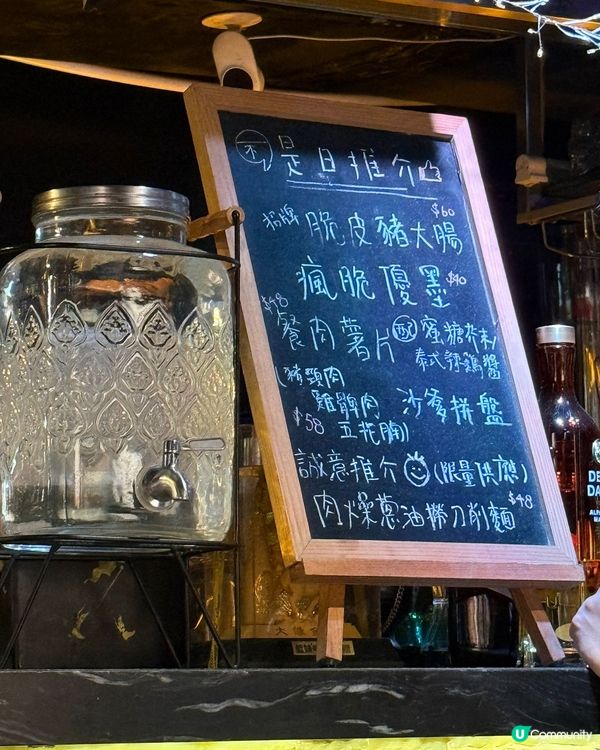 不
是日推介
招牌 脆皮豬大腸 $60
瘋脆優墨 $40
$48 餐肉薯片 配 蜜糖芥末/
泰式辣雞醬
(豬頸肉
雞髀肉 沙爹拼盤
$58 五花腩)
誠意推介 (限量供應)
肉燥蔥油撈刀削麵 $48
DE
DA
U Community